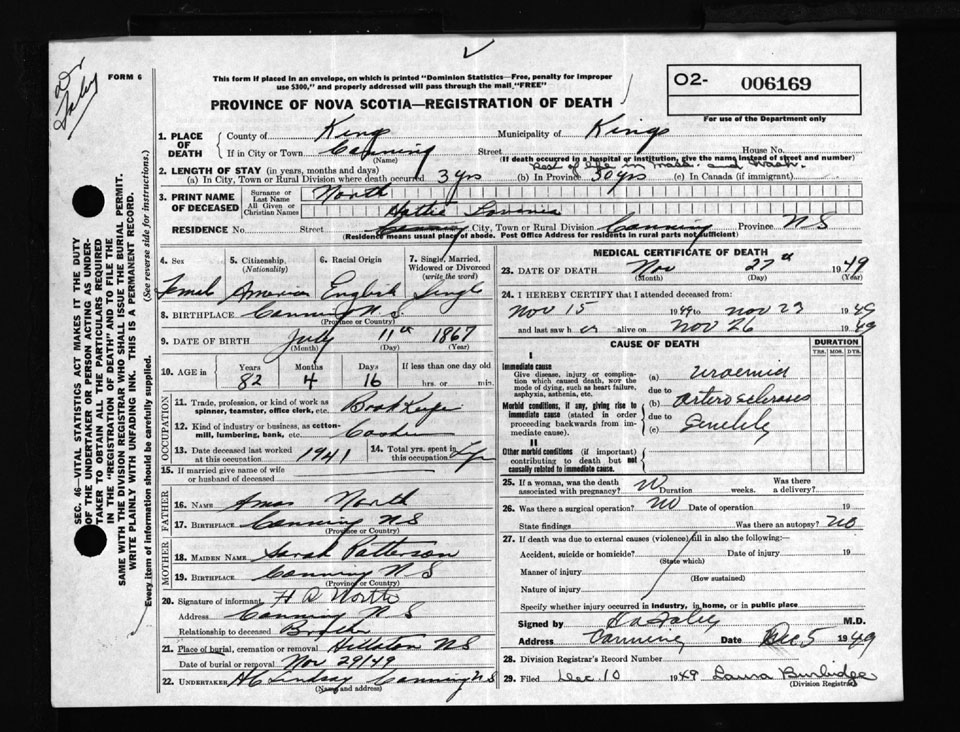 Dr
FORM 6
This form if placed in an envelope, on which is printed "Dominion Statistics—Free, penalty for improper
use $300," and properly addressed will pass through the mail, "FREE"
O2- 006169
For use of the Department only
PROVINCE OF NOVA SCOTIA—REGISTRATION OF DEATH
1. PLACE OF DEATH
County of Kings Municipality of Kings
If in City or Town Canning (Name) Street House No.
(If death occurred in a hospital or institution, give the name instead of street and number)
Rest of life in Mass. and Wash.
2. LENGTH OF STAY (in years, months and days)
(a) In City, Town or Rural Division where death occurred 3 yrs (b) In Province 30 yrs (c) In Canada (if immigrant)
3. PRINT NAME OF DECEASED
Surname or Last Name North
All Given or Christian Names Hattie Lavenia
RESIDENCE No. Street Canning City, Town or Rural Division Canning Province N S
(Residence means usual place of abode. Post Office Address for residents in rural parts not sufficient)
4. Sex 5. Citizenship. (Nationality) 6. Racial Origin 7. Single, Married, Widowed or Divorced (write the word)
Femal American English Single
8. BIRTHPLACE Canning N.S.
(Province or Country)
9. DATE OF BIRTH July 11th 1867
(Month) (Day) (Year)
10. AGE in Years 82 Months 4 Days 16 If less than one day old hrs. or min.
OCCUPATION
11. Trade, profession, or kind of work as spinner, teamster, office clerk, etc. Book Keeper
12. Kind of industry or business, as cotton-mill, lumbering, bank, etc. Cashier
13. Date deceased last worked at this occupation 1941 14. Total yrs. spent in this occupation
15. If married give name of wife or husband of deceased
FATHER
16. NAME Amos North
17. BIRTHPLACE Canning N S
(Province or Country)
MOTHER
18. MAIDEN NAME Sarah Patterson
19. BIRTHPLACE Canning N S
(Province or Country)
20. Signature of informant H D North
Address Canning N S
Relationship to deceased Brother
21. Place of burial, cremation or removal Hillaton NS
Date of burial or removal Nov 29/49
22. UNDERTAKER H C Lindsay Canning N S
(Name and address)
MEDICAL CERTIFICATE OF DEATH
23. DATE OF DEATH Nov 27th 1949
(Month) (Day) (Year)
24. I HEREBY CERTIFY that I attended deceased from:
Nov 15 1949 to Nov 23 1949
and last saw her alive on Nov 26 1949
CAUSE OF DEATH DURATION
YRS. MOS. DYS.
I
Immediate cause
Give disease, injury or complication which caused death, NOT the mode of dying, such as heart failure, asphyxia, asthenia, etc.
(a) uraemia
due to
Morbid conditions, if any, giving rise to immediate cause (stated in order proceeding backwards from immediate cause).
(b) arterosclerosis
due to
(c) Senility
II
Other morbid conditions (if important) contributing to death but not causally related to immediate cause.
25. If a woman, was the death associated with pregnancy? No Duration weeks. Was there a delivery?
26. Was there a surgical operation? No Date of operation 19
State findings Was there an autopsy? no
27. If death was due to external causes (violence) fill in also the following:
Accident, suicide or homicide? Date of injury 19
(State which)
Manner of injury
(How sustained)
Nature of injury
Specify whether injury occurred in industry, in home, or in public place
Signed by M.D.
Address Canning Date Dec 5 1949
28. Division Registrar's Record Number
29. Filed Dec. 10 1949 Laura Burbidge
(Division Registrar)
SEC. 46—VITAL STATISTICS ACT MAKES IT THE DUTY
OF THE UNDERTAKER OR PERSON ACTING AS UNDER-
TAKER TO OBTAIN ALL THE PARTICULARS REQUIRED
IN THE "REGISTRATION OF DEATH" AND TO FILE THE
SAME WITH THE DIVISION REGISTRAR WHO SHALL ISSUE THE BURIAL PERMIT.
WRITE PLAINLY WITH UNFADING INK. THIS IS A PERMANENT RECORD.
Every item of information should be carefully supplied. (See reverse side for instructions.)